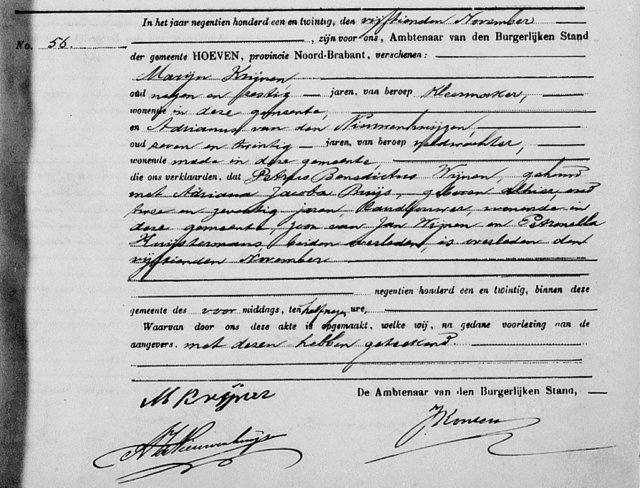 In het jaar negentien honderd een en twintig, den vijftienden November
No. 56. , zijn voor ons, Ambtenaar van den Burgerlijken Stand
der gemeente HOEVEN, provincie Noord-Brabant, verschenen:
Marijn Krijnen
oud negen en zestig jaren, van beroep kleermaker,
wonende in deze gemeente,
en Adrianus van den Nieuwenhuijzen,
oud zeven en twintig jaren, van beroep veldwachter,
wonende mede in deze gemeente,
die ons verklaarden, dat Petrus Benedictus Wijnen, gehuwd
met Adriana Jacoba Buijs, geboren alhier, oud
twee en zeventig jaren, landbouwer, wonende in
deze gemeente, zoon van Jan Wijnen en Petronella
Kuijstermans, beiden overleden, is overleden den
vijftienden November
negentien honderd een en twintig, binnen deze
gemeente des voor middags, ten half negen ure,
Waarvan door ons deze akte is opgemaakt, welke wij, na gedane voorlezing aan de
aangevers, met dezen hebben geteekend.
De Ambtenaar van den Burgerlijken Stand,
M Krijnen